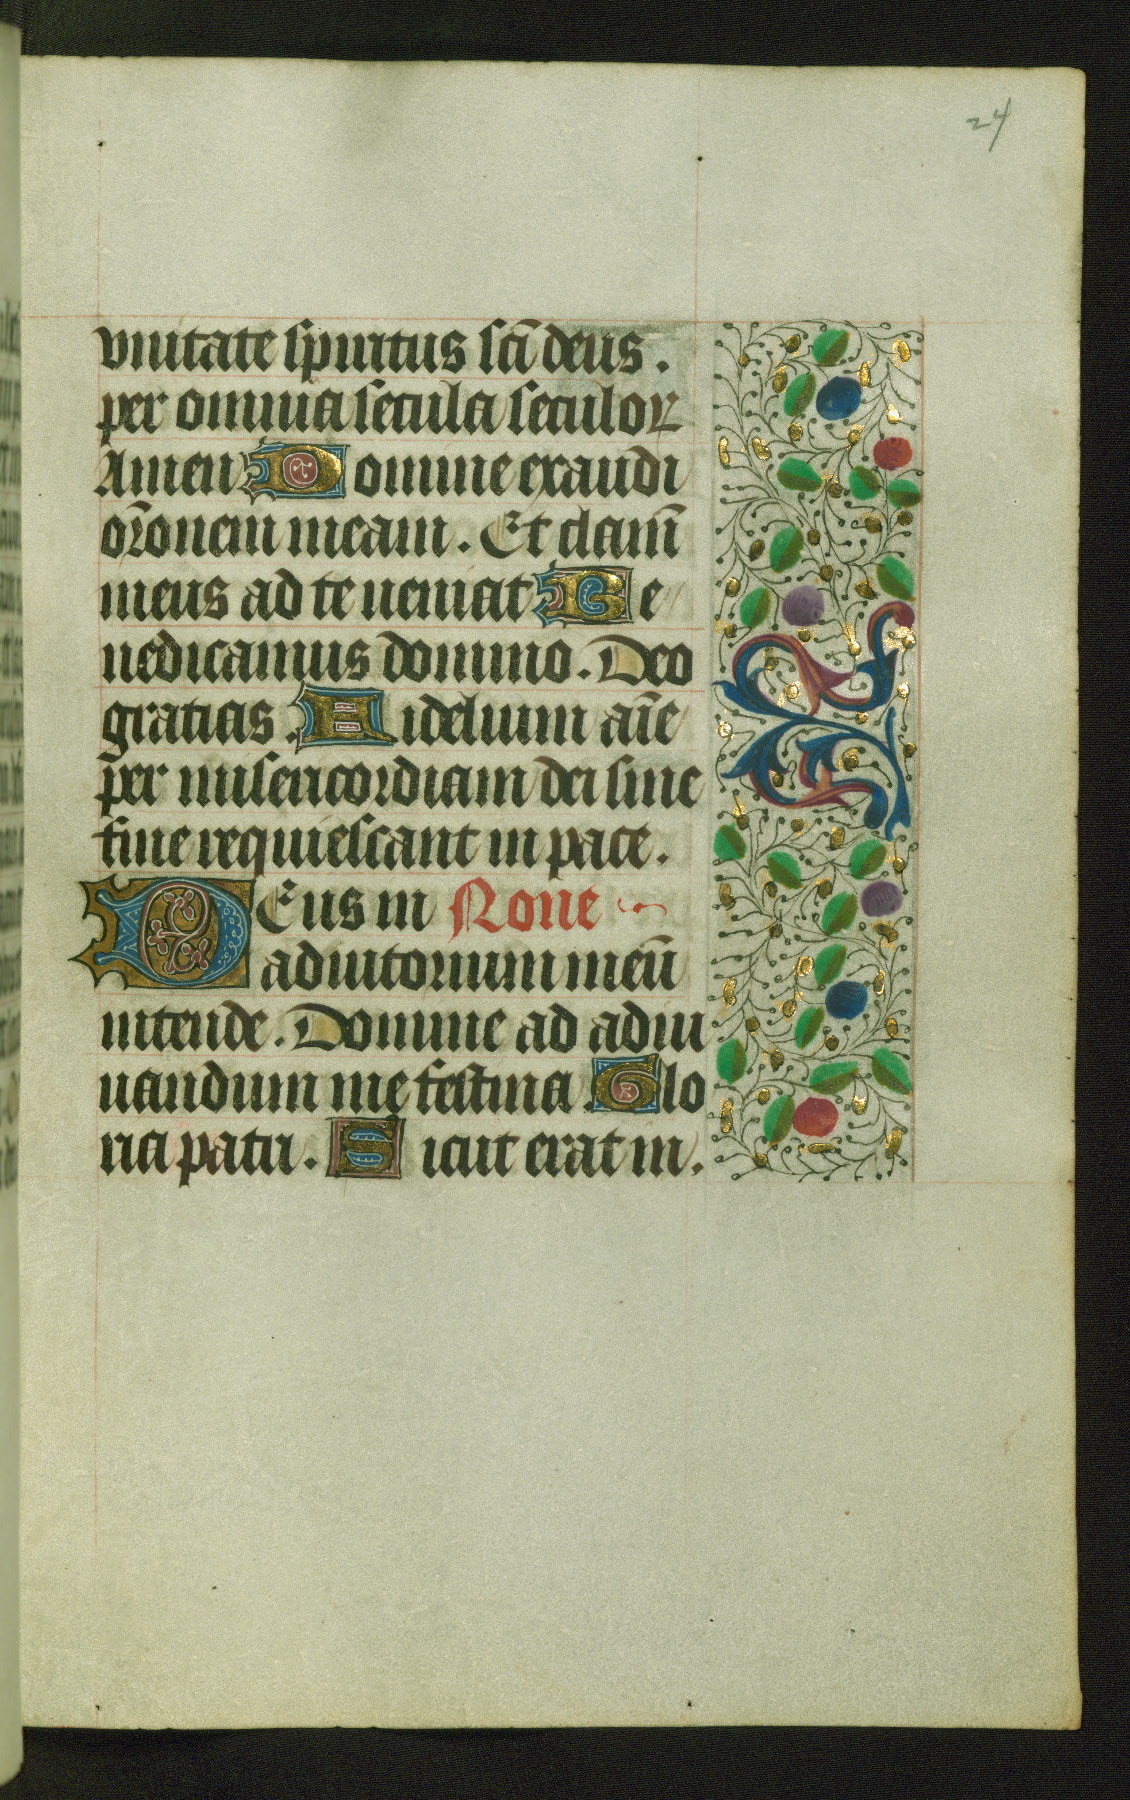 24
vnitate spiritus scī deus.
per omnia secula seculoꝝ
Amen Domine exaudi
or̄onem meam. Et clam̄
meus ad te ueniat Be
nedicamus domino. Deo
gratias. Fidelium aīe
per misericordiam dei sine
fine requiescant in pace.
DEus in None
adiutorium meū
intende. Domine ad adiu
uandum me festina. Glo
ria patri. Sicut erat in.